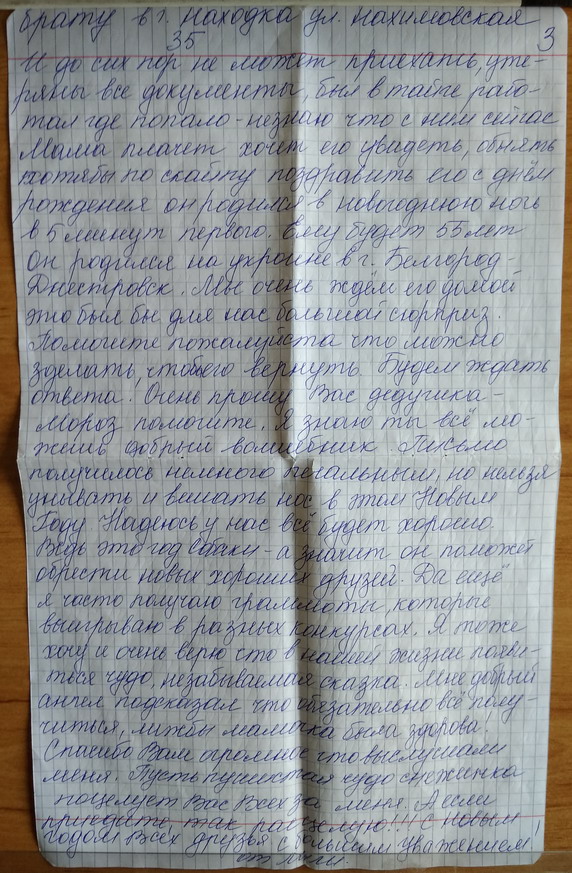 брату в г. Находка ул. Нахимовская
35 3
И до сих пор не может приехать, уте-
ряны все документы, был в тайге рабо-
тал где попало - незнаю что с ним сейчас
Мама плачет хочет его увидеть, обнять
хотябы по скайпу поздравить его с днём
рождения он родился в новогоднюю ночь
в 5 минут первого. Ему будет 55 лет
Он родился на украине в г. Белгород-
Днестровск. Мы очень ждём его домой
это был бы для нас большой сюрприз.
Помогите пожалуйста что можно
зделать, чтобы его вернуть. Будем ждать
ответа! Очень прошу Вас дедушка-
Мороз помогите. Я знаю ты всё мо-
жешь добрый волшебник Письмо
получилось немного печальным, но нельзя
унывать и вешать нос в этом Новым
Году. Надеюсь у нас всё будет хорошо.
Ведь это год Собаки - а значит он поможет
обрести новых хороших друзей. Да ещё
я часто получаю граммоты, которые
выигрываю в разных конкурсах. Я тоже
хочу и очень верю что в нашей жизни появи-
тся чудо, незабываемая сказка. Мне добрый
ангел подсказал что обязательно всё полу-
читься, лижбы мамочка была здорова!
Спасибо Вам огромное что выслушали
меня. Пусть пушистая чудо снежинка
поцелует Вас Всех за меня. А если
приедите, так расцелую!!! С новым
годом Всех друзья с большим уважением!
от